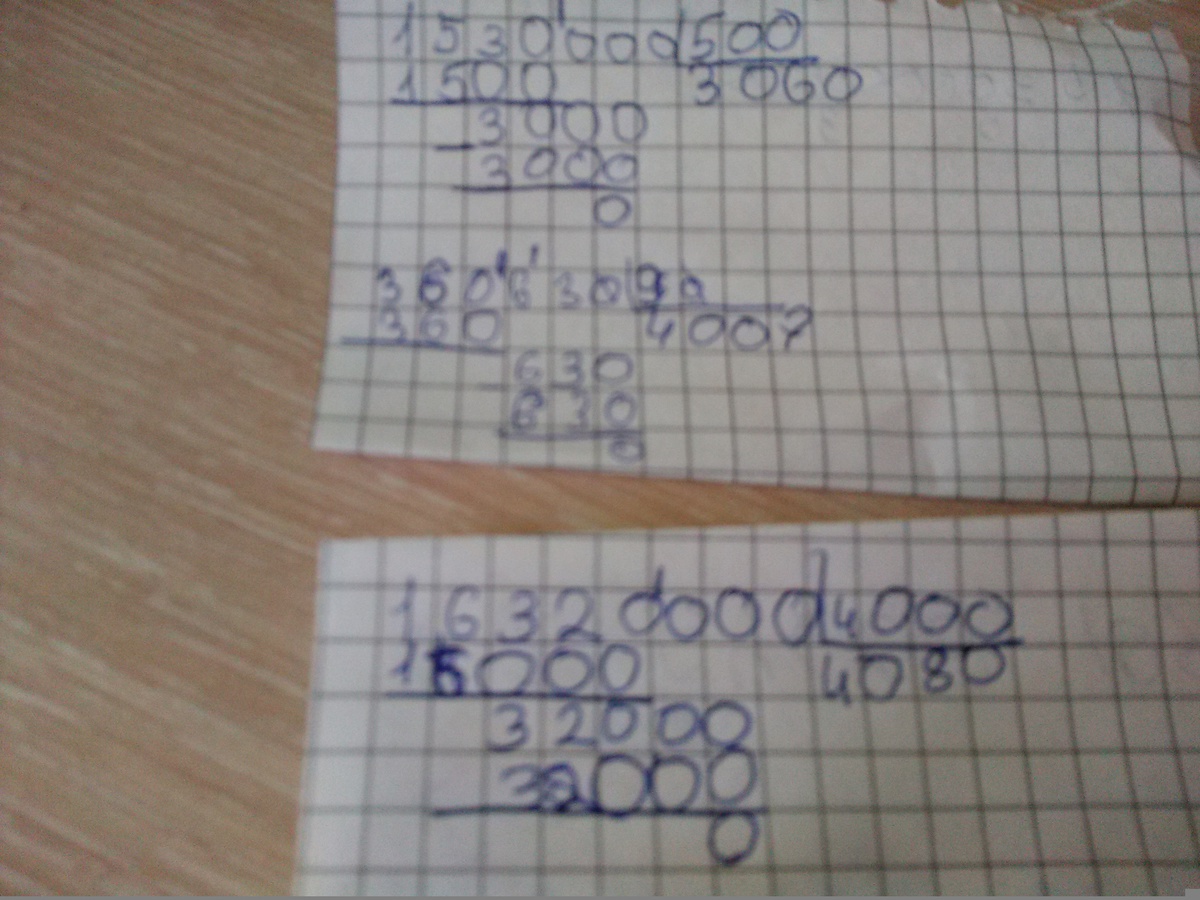 1530'000 500
1500 3060
3000
- 3000
0
360'6'30 90
360 4007
630
630
0
16320000 4000
16000 4080
32000
32000
0